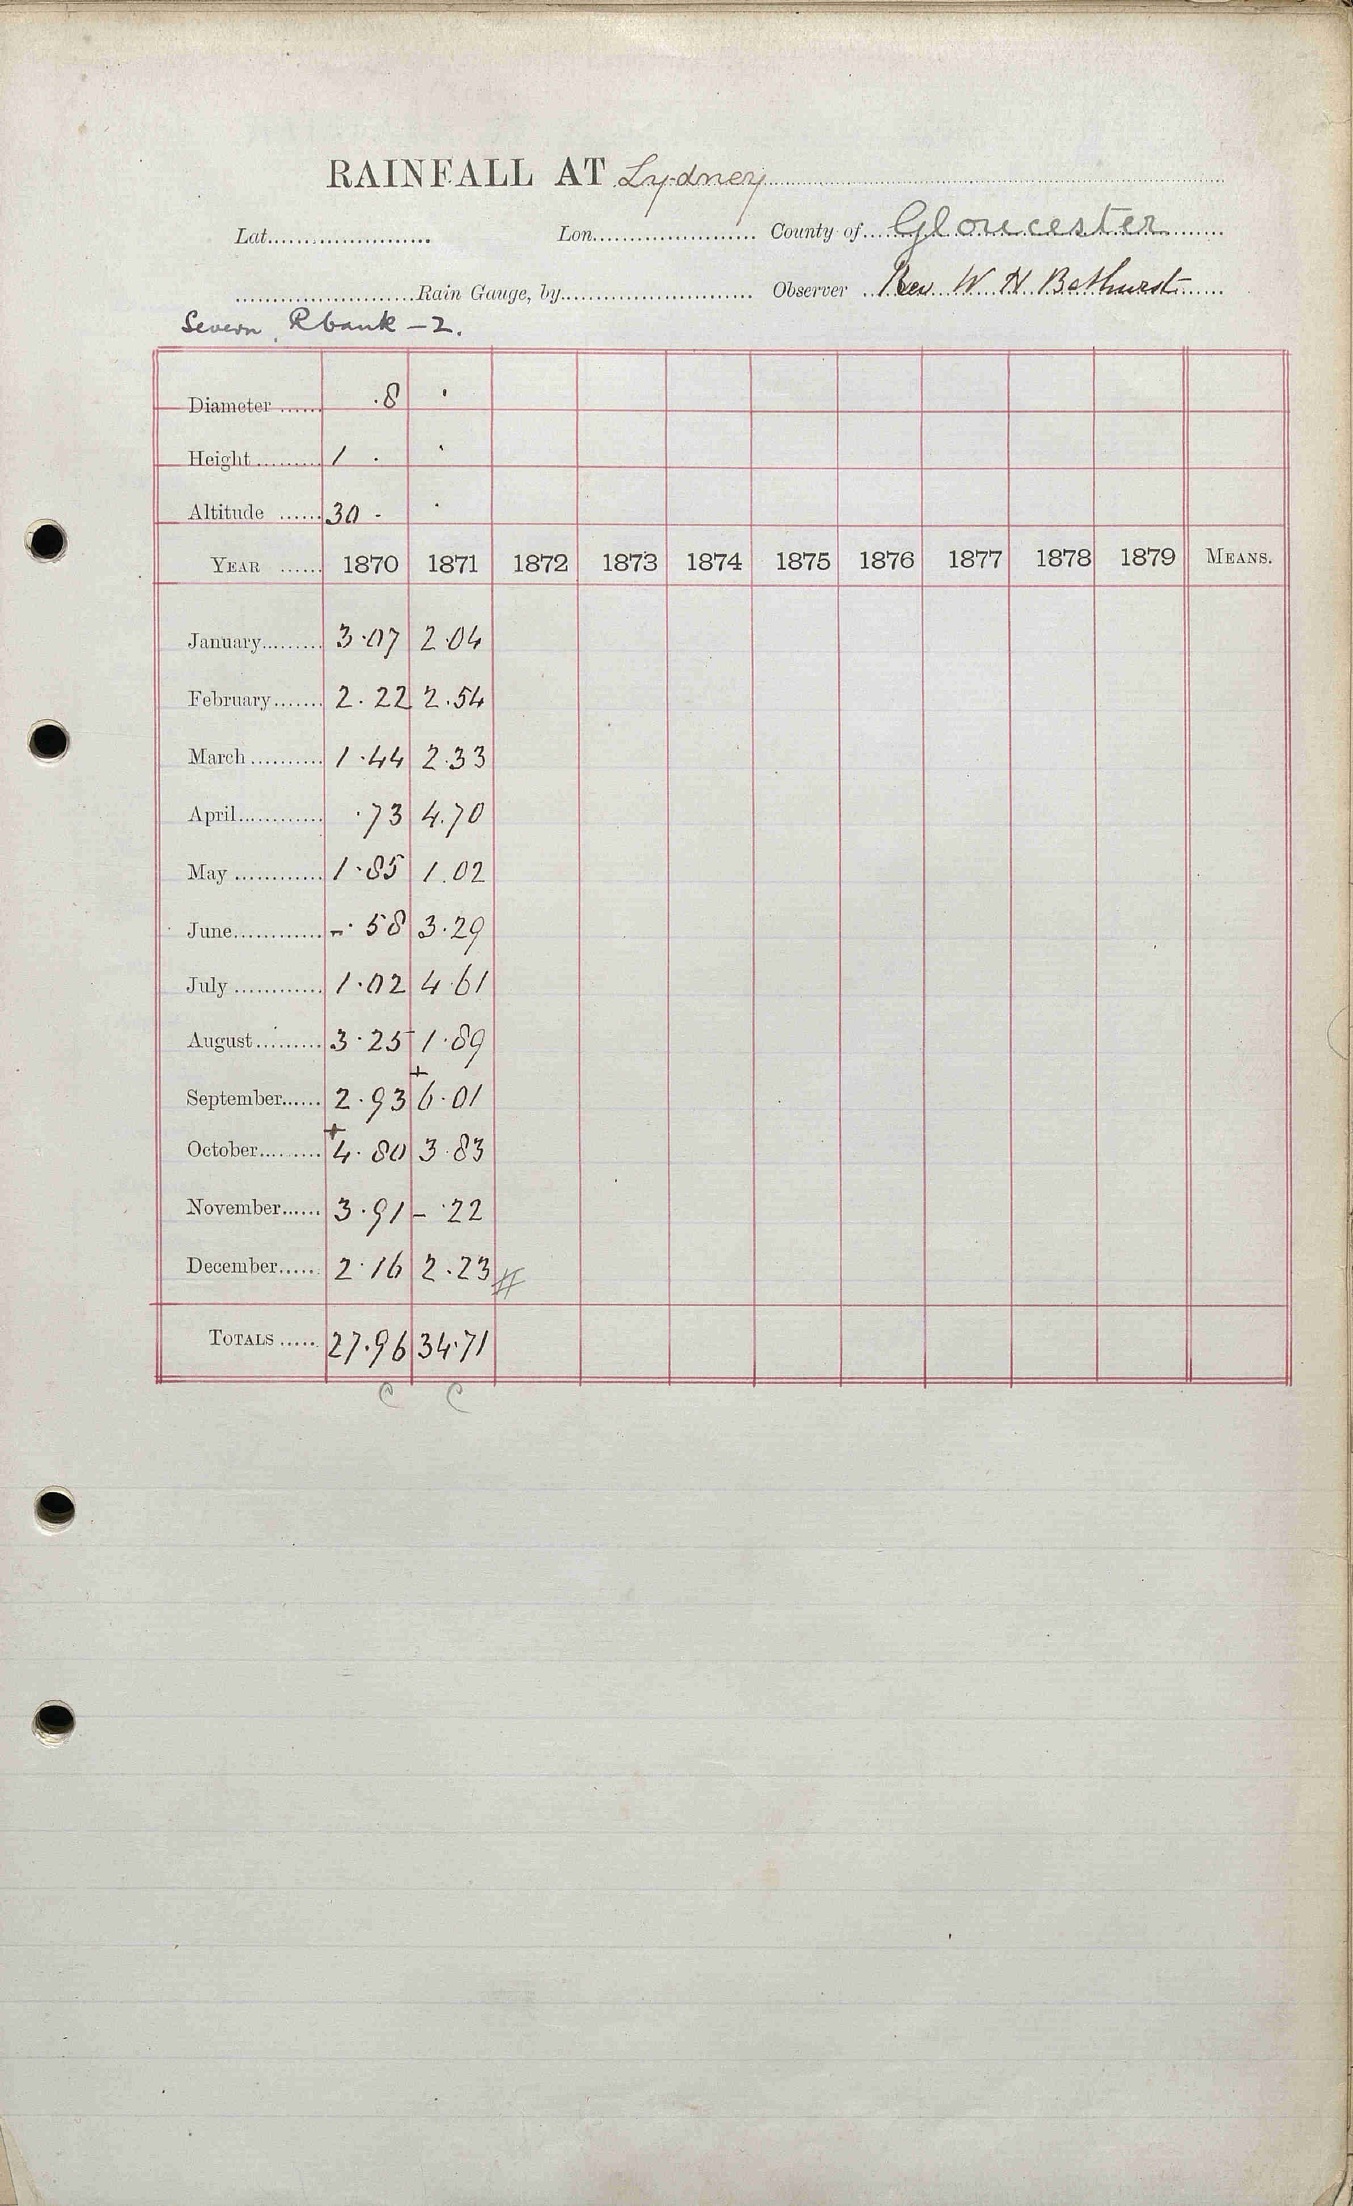 RAINFALL AT Lydney
Lat. Lon. County of Gloucester
Rain Gauge, by Observer Rev W H Bathurst
Severn R bank – 2.
Diameter ...... .8 .
Height ......... 1 . .
Altitude ...... 30 - .
YEAR ...... 1870 1871 1872 1873 1874 1875 1876 1877 1878 1879 MEANS.
January......... 3.07 2.04
February....... 2.22 2.54
March .......... 1.44 2.33
April............ .73 4.70
May ............ 1.85 1.02
June............ -.58 3.29
July ............ 1.02 4.61
August......... 3.25 1.89
September...... 2.93 +6.01
October......... +4.80 3.83
November...... 3.91 - .22
December...... 2.16 2.23 #
TOTALS ..... 27.96 34.71
C C